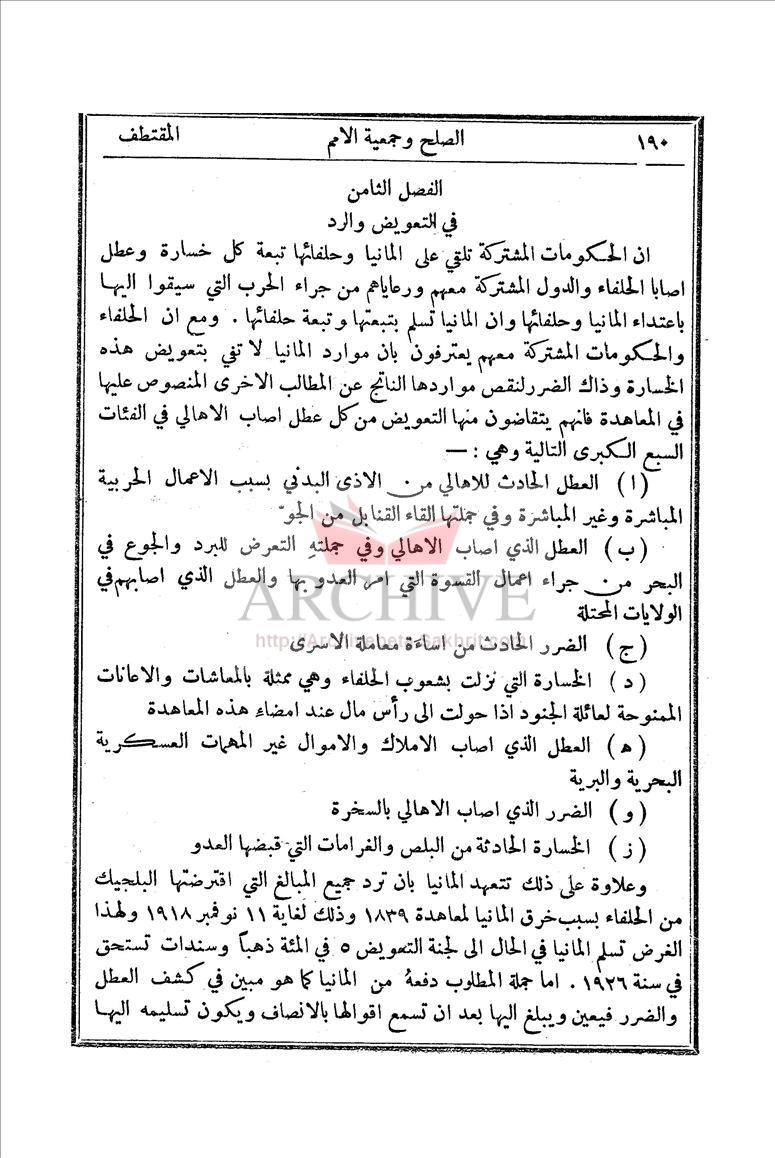 ١٩٠ الصلح وجمعية الامم المقتطف
الفصل الثامن
في التعويض والرد
ان الحكومات المشتركة تلقي على المانيا وحلفائها تبعة كل خسارة وعطل
اصابا الحلفاء والدول المشتركة معهم ورعاياهم من جراء الحرب التي سيقوا اليها
باعتداء المانيا وحلفائها وان المانيا تسلم بتبعتها وتبعة حلفائها . ومع ان الحلفاء
والحكومات المشتركة معهم يعترفون بان موارد المانيا لا تفي بتعويض هذه
الخسارة وذاك الضرر لنقص مواردها الناتج عن المطالب الاخرى المنصوص عليها
في المعاهدة فانهم يتقاضون منها التعويض من كل عطل اصاب الاهالي في الفئات
السبع الكبرى التالية وهي : —
( ا ) العطل الحادث للاهالي من الاذى البدني بسبب الاعمال الحربية
المباشرة وغير المباشرة وفي جملتها القاء القنابل من الجوّ
( ب ) العطل الذي اصاب الاهالي وفي جملتهِ التعرض للبرد والجوع في
البحر من جراء اعمال القسوة التي امر العدو بها والعطل الذي اصابهم في
الولايات المحتلة
( ج ) الضرر الحادث من اساءة معاملة الاسرى
( د ) الخسارة التي نزلت بشعوب الحلفاء وهي ممثلة بالمعاشات والاعانات
الممنوحة لعائلة الجنود اذا حولت الى رأس مال عند امضاءِ هذه المعاهدة
( ه ) العطل الذي اصاب الاملاك والاموال غير المهمات العسكرية
البحرية والبرية
( و ) الضرر الذي اصاب الاهالي بالسخرة
( ز ) الخسارة الحادثة من البلص والغرامات التي قبضها العدو
وعلاوة على ذلك تتعهد المانيا بان ترد جميع المبالغ التي اقترضتها البلجيك
من الحلفاء بسبب خرق المانيا لمعاهدة ١٨٣٩ وذلك لغاية ١١ نوفمبر ١٩١٨ ولهذا
الغرض تسلم المانيا في الحال الى لجنة التعويض ٥ في المئة ذهباً وسندات تستحق
في سنة ١٩٢٦ . اما جملة المطلوب دفعهُ من المانيا كما هو مبين في كشف العطل
والضرر فيعين ويبلغ اليها بعد ان تسمع اقوالها بالانصاف ويكون تسليمه اليها
ARCHIVE
http://Archivebeta.Sakhrit.com